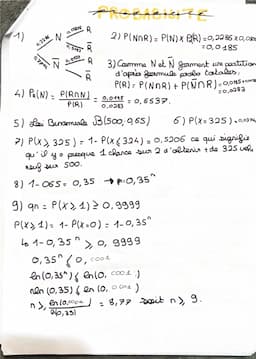 PROBABILITE
1) N R
R
N̄ R
R̄
2) P(N∩R) = P(N) x P(R) = 0,2285 x 0,08
= 0,0185
3) Comme N et N̄ forment une partition
d'après formule proba totales.
P(R) = P(N∩R) + P(N̄∩R) =
= 0,0283
4) PR(N) = P(R∩N) / P(R) = 0,0185 / 0,0283 = 0,6537.
5) Loi Binomiale B(500, 0,65) 6) P(X=325)
7) P(X ≥ 325) = 1 - P(X ≤ 324) = 0,5206 ce qui signifie
qu'il y a presque 1 chance sur 2 d'obtenir + de 325
neuf sur 500.
8) 1-0,65 = 0,35 → 0,35ⁿ
9) qn = P(X ≥ 1) ≥ 0,9999
P(X ≥ 1) = 1 - P(X=0) = 1-0,35ⁿ
↳ 1-0,35ⁿ ≥ 0,9999
0,35ⁿ ≤ 0,0001
ln(0,35ⁿ) ≤ ln(0,0001)
nln(0,35) ≤ ln(0,0001)
n ≥ ln(0,0001) / ln(0,35) = 8,77 soit n ≥ 9.